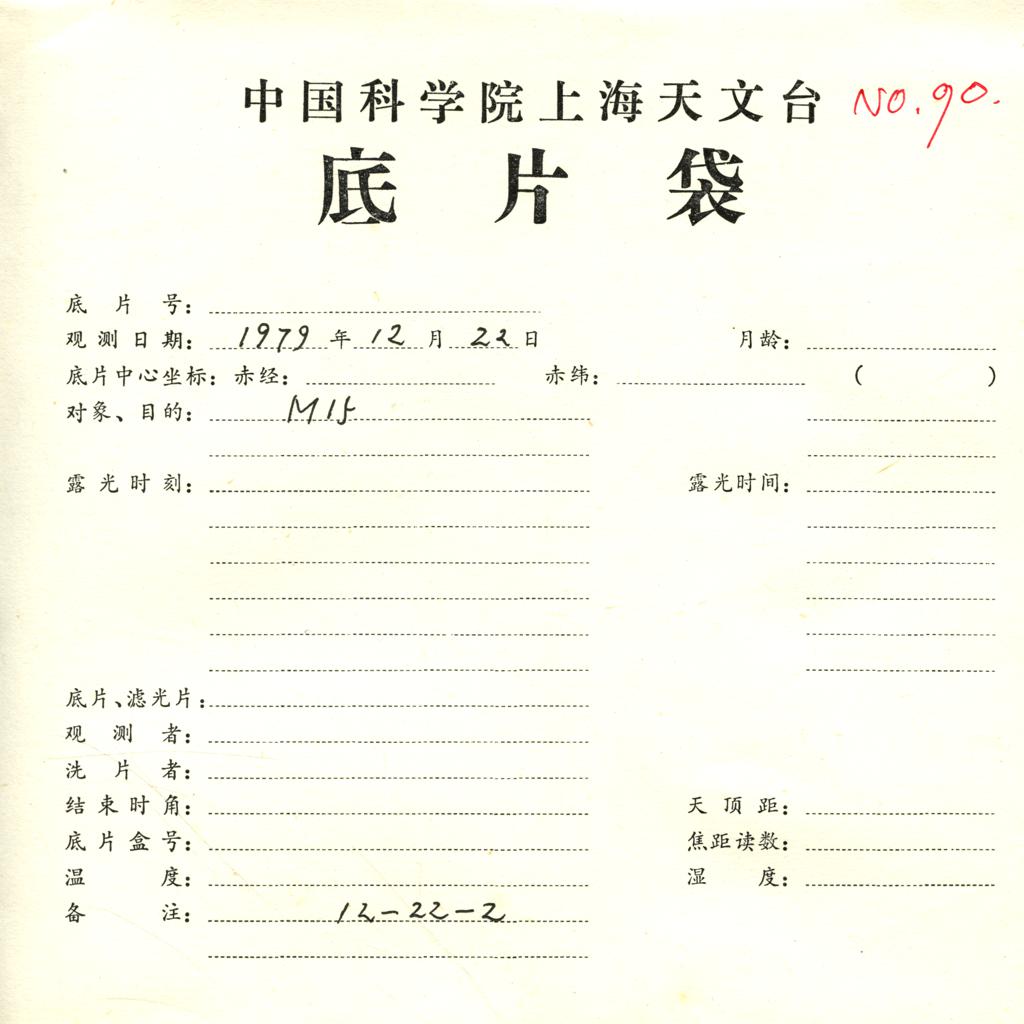 中国科学院上海天文台 NO.90.
底片袋
底片号：
观测日期：1979年12月22日 月龄：
底片中心坐标：赤经： 赤纬： （ ）
对象、目的：M15
露光时刻： 露光时间：
底片、滤光片：
观测者：
洗片者：
结束时角： 天顶距：
底片盒号： 焦距读数：
温度： 湿度：
备注：12-22-2